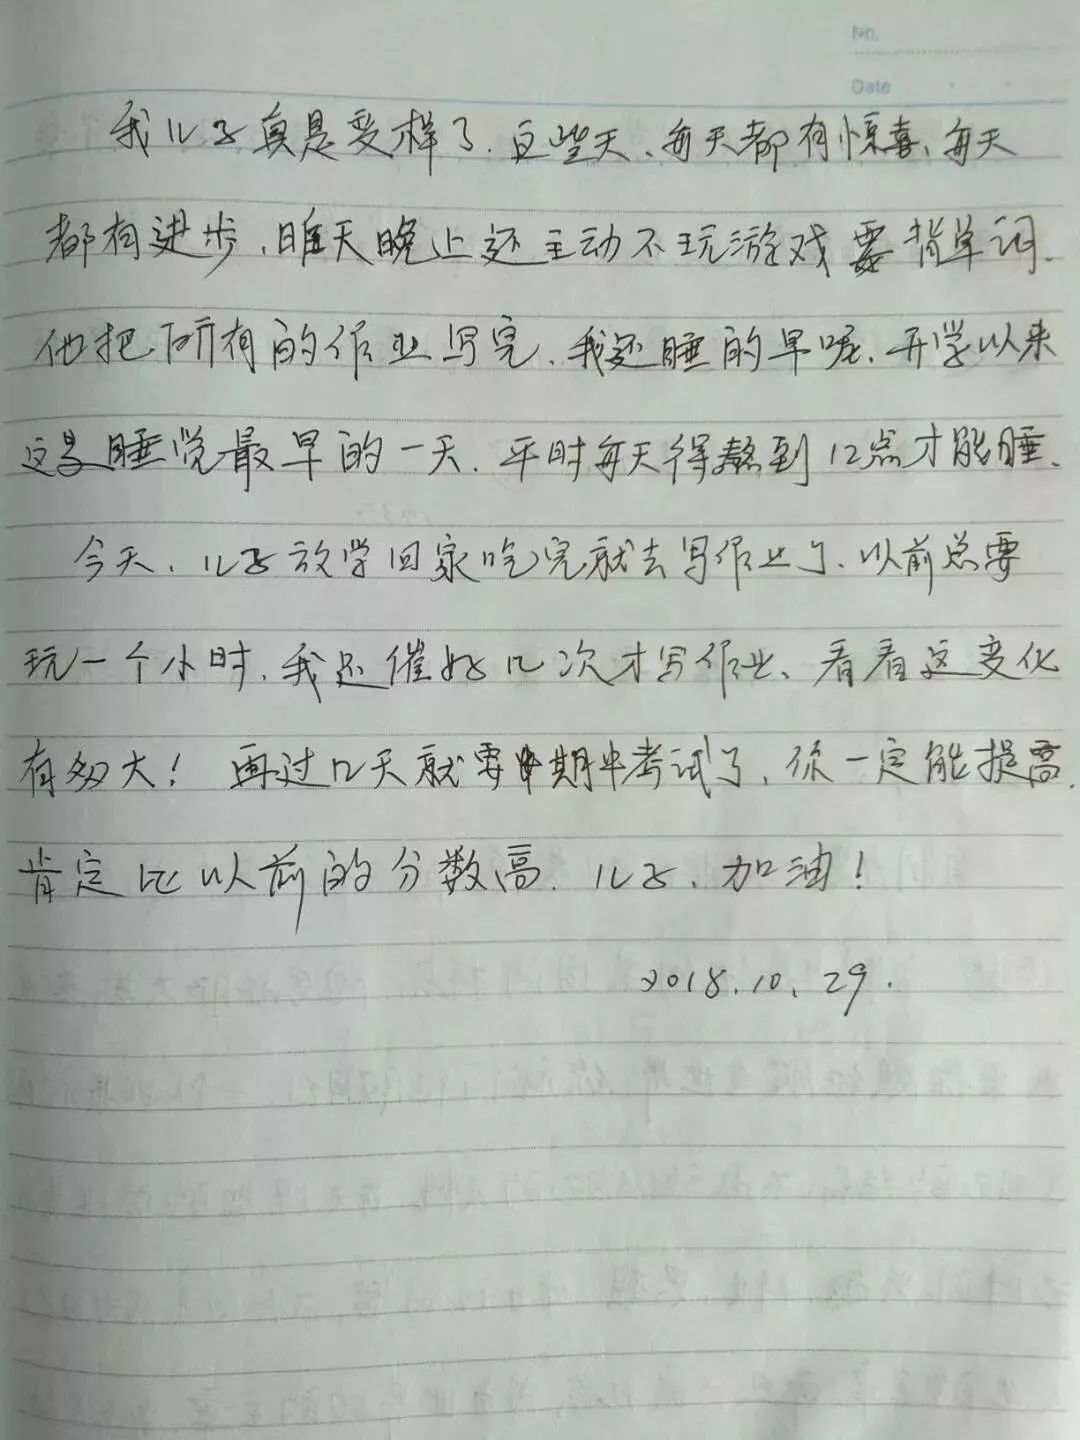 No.
Date
我儿子真是变样了.这些天、每天都有惊喜、每天
都有进步,昨天晚上还主动不玩游戏要背单词.
他把所有的作业写完、我还睡的早呢、开学以来
这是睡觉最早的一天.平时每天得熬到12点才能睡、
今天、儿子放学回家吃完就去写作业了、以前总要
玩一个小时,我还催好几次才写作业、看看这变化
有多大！再过几天就要期中考试了,你一定能提高.
肯定比以前的分数高.儿子、加油！
2018.10.29.